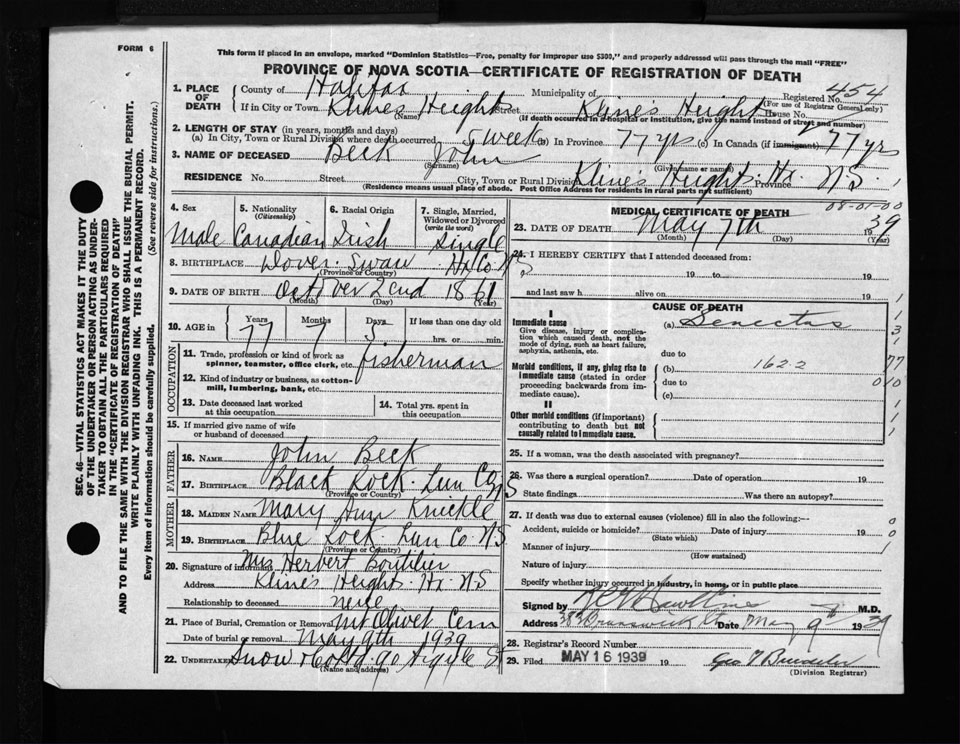 FORM 6
This form if placed in an envelope, marked "Dominion Statistics—Free, penalty for improper use $300," and properly addressed will pass through the mail "FREE"
PROVINCE OF NOVA SCOTIA—CERTIFICATE OF REGISTRATION OF DEATH
1. PLACE OF DEATH County of Halifax Municipality of Registered No. 454
(For use of Registrar General only)
If in City or Town Klines Height Street Kline's Height House No.
(Name) (If death occurred in a hospital or institution, give the name instead of street and number)
2. LENGTH OF STAY (in years, months and days)
(a) In City, Town or Rural Division where death occurred 5 week (b) In Province 77 yrs (c) In Canada (if immigrant) 77 yrs
3. NAME OF DECEASED Beck John
(Surname) (Given name or names)
RESIDENCE No. Street City, Town or Rural Division Kline's Height. Hx. Province N.S.
(Residence means usual place of abode. Post Office Address for residents in rural parts not sufficient)
4. Sex Male
5. Nationality (Citizenship) Canadian
6. Racial Origin Irish
7. Single, Married, Widowed or Divorced (write the word) Single
8. BIRTHPLACE Dover. Swan. Hx Co NS
(Province or Country)
9. DATE OF BIRTH October 2nd 1861
(Month) (Day) (Year)
10. AGE in Years 77 Months 7 Days 5 If less than one day old hrs. or min.
OCCUPATION
11. Trade, profession or kind of work as spinner, teamster, office clerk, etc. fisherman
12. Kind of industry or business, as cotton-mill, lumbering, bank, etc.
13. Date deceased last worked at this occupation
14. Total yrs. spent in this occupation
15. If married give name of wife or husband of deceased
FATHER
16. NAME John Beck
17. BIRTHPLACE Black Rock. Lun Co NS
(Province or Country)
MOTHER
18. MAIDEN NAME Mary Ann Knickle
19. BIRTHPLACE Blue Rock. Lun Co. NS
(Province or Country)
20. Signature of informant Mrs Herbert Boutilier
Address Kline's Height. Hx. NS
Relationship to deceased neice
21. Place of Burial, Cremation or Removal Mt Olivet Cem
Date of burial or removal May 9th 1939
22. UNDERTAKER Snow & Co Ltd. 90 Argyle St
(Name and address)
MEDICAL CERTIFICATE OF DEATH
08-01-00
23. DATE OF DEATH May 7th 1939
(Month) (Day) (Year)
24. I HEREBY CERTIFY that I attended deceased from:
19 to 19
and last saw h alive on 19
CAUSE OF DEATH
I
Immediate cause
Give disease, injury or complication which caused death, not the mode of dying, such as heart failure, asphyxia, asthenia, etc.
(a) Senectus
due to
Morbid conditions, if any, giving rise to immediate cause (stated in order proceeding backwards from immediate cause).
(b) 162-2
due to
(c)
II
Other morbid conditions (if important) contributing to death but not causally related to immediate cause.
25. If a woman, was the death associated with pregnancy?
26. Was there a surgical operation? Date of operation 19
State findings Was there an autopsy?
27. If death was due to external causes (violence) fill in also the following:—
Accident, suicide or homicide? Date of injury 19
(State which)
Manner of injury
(How sustained)
Nature of injury
Specify whether injury occurred in industry, in home, or in public place
Signed by M.D.
Address Brunswick St Date May 9th 1939
28. Registrar's Record Number
29. Filed MAY 16 1939 19
(Division Registrar)
SEC. 46—VITAL STATISTICS ACT MAKES IT THE DUTY
OF THE UNDERTAKER OR PERSON ACTING AS UNDERTAKER TO OBTAIN ALL THE PARTICULARS REQUIRED
IN THE "CERTIFICATE OF REGISTRATION OF DEATH"
AND TO FILE THE SAME WITH THE DIVISION REGISTRAR WHO SHALL ISSUE THE BURIAL PERMIT.
WRITE PLAINLY WITH UNFADING INK. THIS IS A PERMANENT RECORD.
Every item of information should be carefully supplied. (See reverse side for instructions.)